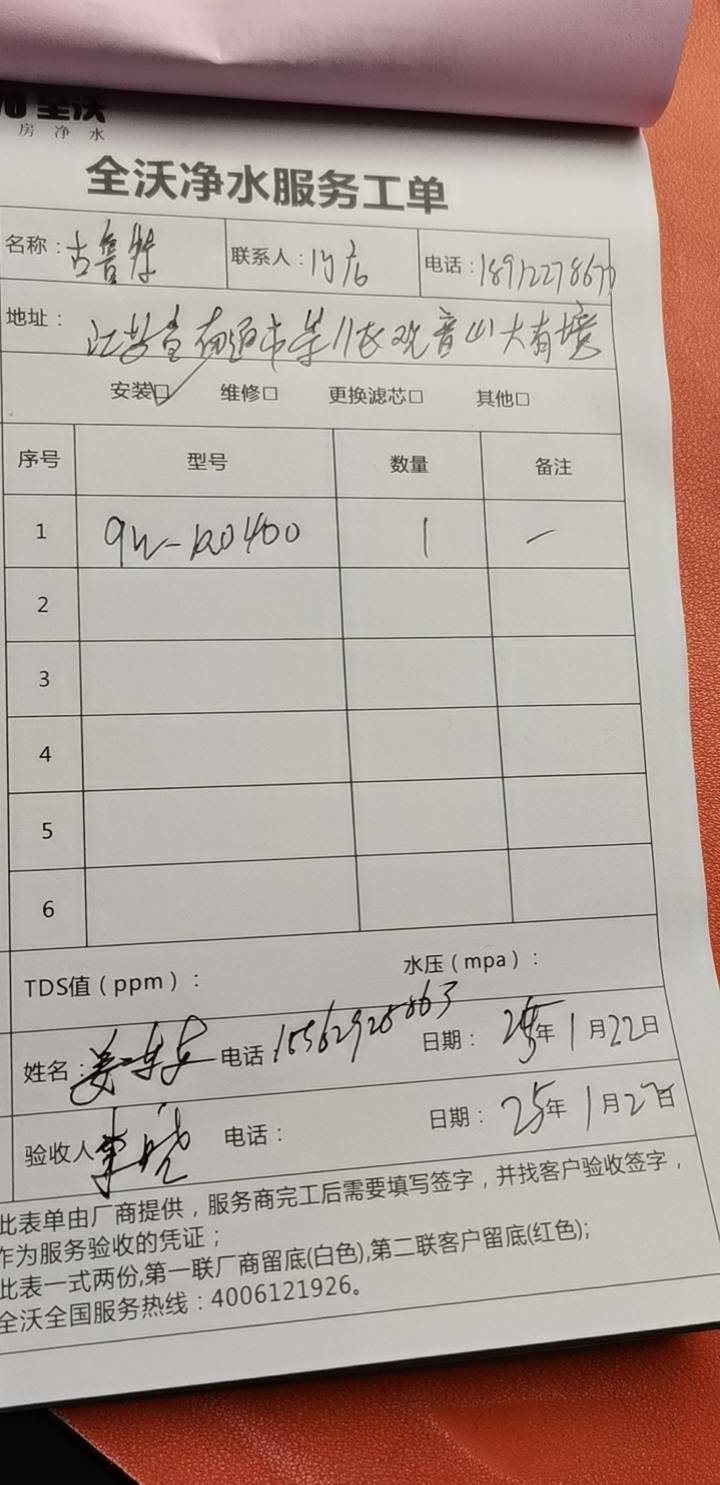 全沃
房净水
全沃净水服务工单
名称：古鲁特 联系人： 电话：
地址：江苏省南通市崇川区观音山大有境
安装☑ 维修□ 更换滤芯□ 其他□
序号 型号 数量 备注
1 QW-RO400 1 一
2
3
4
5
6
TDS值（ppm）： 水压（mpa）：
姓名： 电话 日期： 25年1月22日
验收人 李晓 电话： 日期：25年1月22日
此表单由厂商提供，服务商完工后需要填写签字，并找客户验收签字，
作为服务验收的凭证；
此表一式两份,第一联厂商留底(白色),第二联客户留底(红色);
全沃全国服务热线：4006121926。